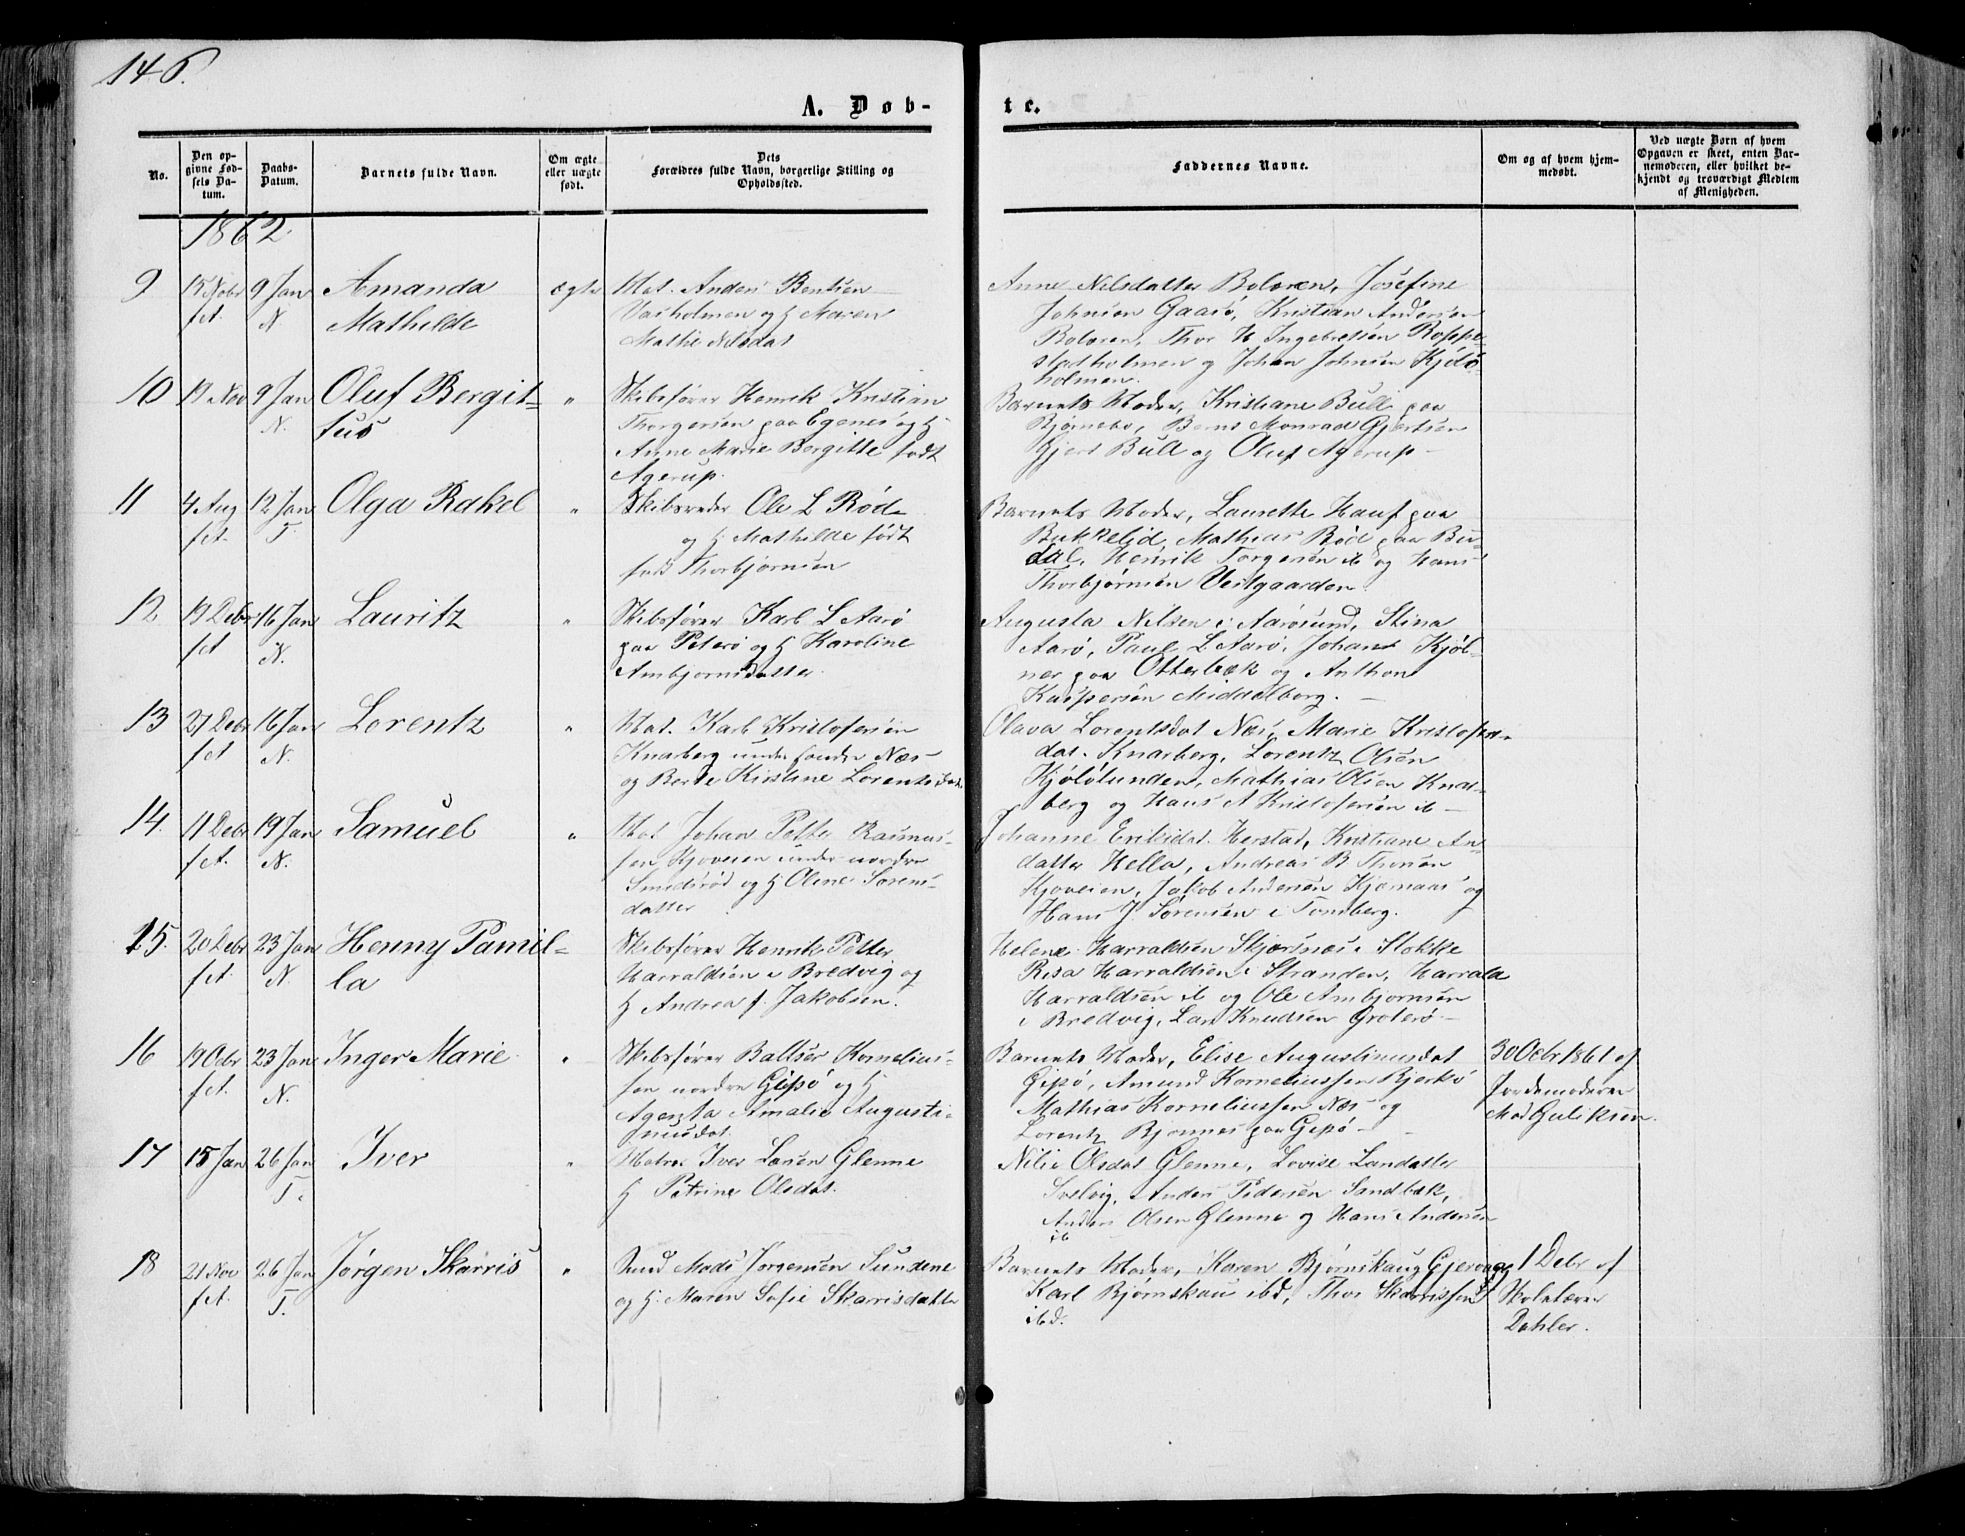 146.
A. Døb-
te.
No.
Den op-
givne Fød-
sels Da-
tum.
Daabs-
Datum.
Barnets fulde Navn.
Om ægte
eller uægte
født.
Dets
Forældres fulde Navn, borgerlige Stilling og
Opholdssted.
Faddernes Navne.
Om og af hvem hjem-
medøbt.
Ved uægte Børn af hvem
Opgaven er skeet, enten Bar-
nemoderen, eller hvilket be-
kjendt og troværdigt Medlem
af Menigheden.
1862
9
15 Nobr
fA.
9 Jan
N.
Amanda
Mathilde
ægte
Mat. Anders Bentsen
Vasholmen og H Maren
Mathe Nilsdat
Anne Nilsdatter Bolæren, Josefine
Johnsen Gaasø, Kristian Andersen
Bolæren, Thor H Ingebretsen Roppe-
stadholmen og Johan Johnsen Kjøl-
holmen.
10
19 Nov
9 Jan
N.
Oluf Bergit-
tus
"
Skibsfører Henrik Kristian
Thorgersen paa Egenes og H
Anne Marie Bergitte født
Agerup.
Barnets Moder, Kristiane Bull paa
Bjørnebo, Bernt Monrad Gjertsen
Gjert Bull og Oluf Agerup -
11
4 Aug
fA.
12 Jan
T.
Olga Rakel
"
Skibsreder Ole L Rød
og H. Mathilde født
Thorbjørnsen
Barnets Moder, Laurette Hauf paa
Bukkelid, Mathias Rød paa Bu-
dal, Henrik Torgersen ib og Hans
Thorbjørnsen Vestgaarden.
12
19 Debr
fA
16 Jan
N.
Lauritz
"
Skibsfører Karl L Aarø
paa Peterø og H Karoline
Ambjørnsdatter.
Augusta Nilsen i Aarøsund, Stina
Aarø, Paul L Aarø, Johans Kjøl-
ner paa Otterbæk og Anthon
Kaspersen Middelborg. -
13
27 Debr
fA
16 Jan
N.
Lorentz
"
Mat. Karl Kristofersen
Knarberg under søndre Næs
og Berte Kirstine Lorentsdat.
Olava Lorentsdat Næs, Marie Kristofers-
dat. Knarberg, Lorentz Olsen
Kjølølunden, Mathias Olsen Knar-
berg og Hans A Kristofersen ib -
14.
11 Debr
fA.
19 Jan
N.
Samuel
"
Mat Johan Petter Rasmus-
sen Kjoveien under nordre
Smidsrød og H Oline Sørens-
datter
Johanne Eriksdat. Herstad, Kristiane An-
datter Hella, Andreas B Thorsen
Kjoveien, Jakob Andersen Kjæmaas og
Hans J Sørensen i Tønsberg.
15.
20 Debr
fA.
23 Jan
N.
Henny Pamil-
la
Skibsfører Henrik Petter
Harraldsen i Bredvig og
H Andrea f. Jakobsen.
Helene Harraldsen Skjærsnæs i Stokke
Risa Harraldsen i Stranden, Harrald
Harraldsen ib og Ole Ambjørnsen
i Bredvig, Lars Knudsen Groterø -
16
19 Obr
fA.
23 Jan
N.
Inger Marie
"
Skibsfører Baltser Kornelius-
sen nordre Gipø og H
Agenta Amalie Augusti-
nusdat.
Barnets Moder, Elise Augustinusdat
Gipø, Amund Korneliussen Bjerkø
Mathias Korneliussen Næs og
Lorentz Bjønnes paa Gipø -
30 Octbr 1861 af
Jordemoderen
Mad Guliksen.
17
15 Jan
26 Jan
T.
Iver
"
Matros Iver Larsen Glenne
H Petrine Olsdat.
Nilia Olsdat Glenne, Lovise Larsdatter
Solvig, Anders Pedersen Sandbæk,
Anders Olsen Glenne og Hans Andersen
ib
18
21 Nov
fA.
26 Jan
T.
Jørgen Skarris
"
Smed Mads Jørgensen Sundene
og H. Maren Sofie Skarrisdatter
Barnets Moder, Karen Bjørnskaug Gjervaag
Karl Bjørnskau ibd, Thor Skarrissen
ibd.
1 Debr af
Skolelærer
Dahler.